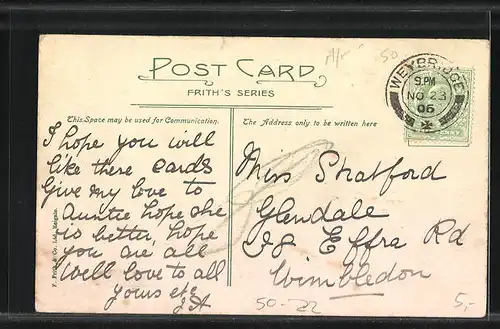 A/r 50
POST CARD
FRITH'S SERIES
WEYBRIDGE
9.PM
NO 23
06
This Space may be used for Communication.
The Address only to be written here
I hope you will
like these cards
Give my love to
Auntie hope she
is better, hope
you are all
well love to all
yours etc
JA
Miss Stratford
Glendale
Effra Rd
Wimbledon
F. Frith & Co. Ltd., Reigate.
50-22
5,-